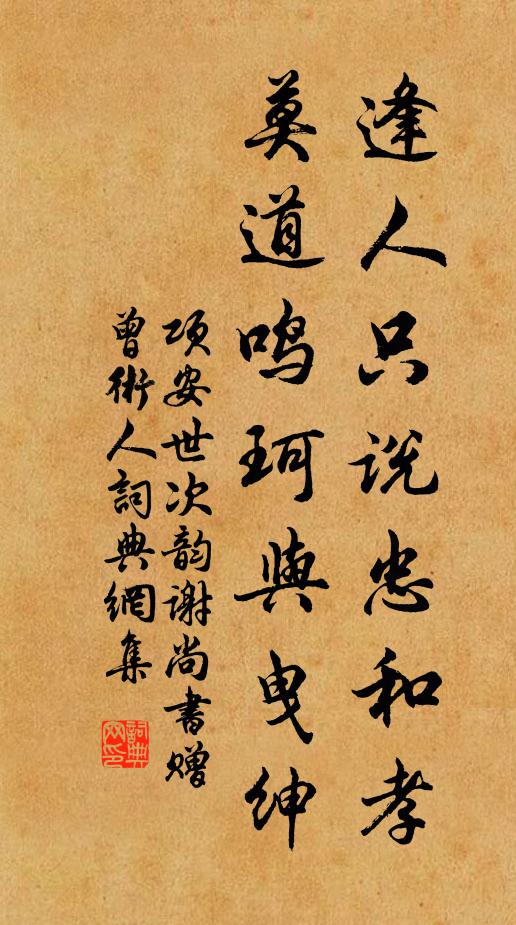 逢人只说忠和孝
莫道鸣珂与曳绅
项安世次韵谢尚书赠
曾術人詞典網集
詞典
网印